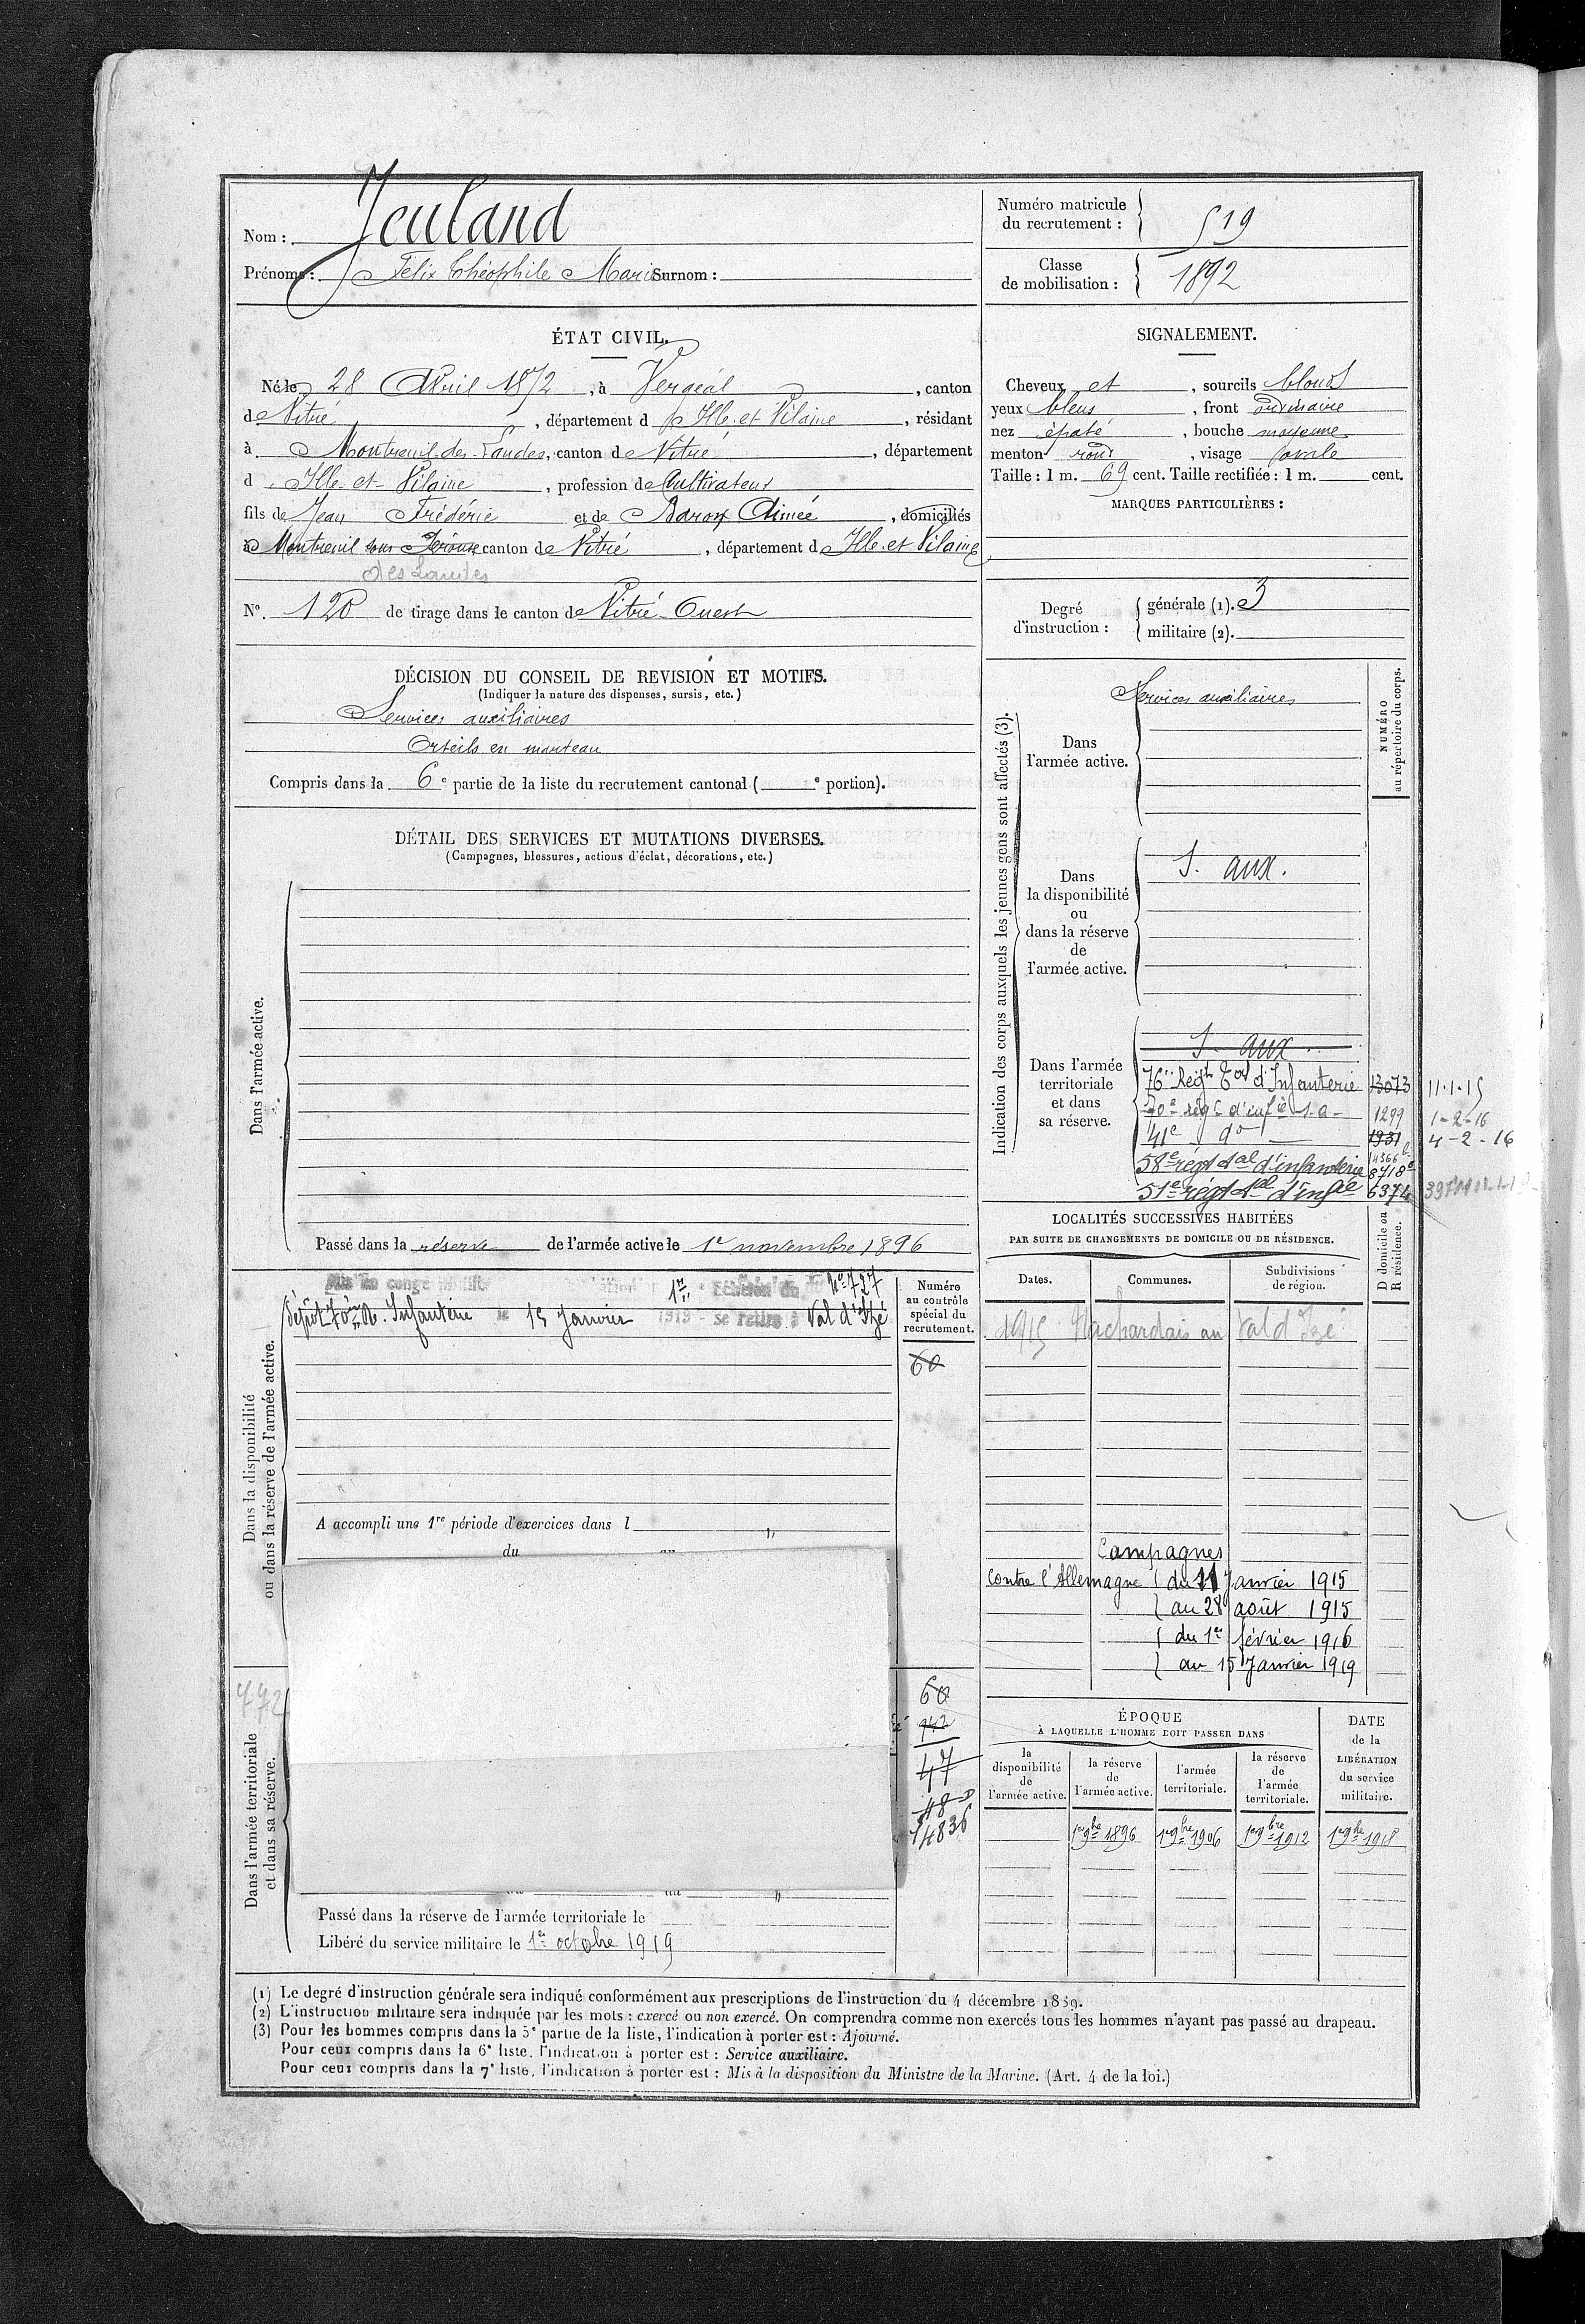 Nom : Jeuland
Prénoms : Félix Théophile Marie Surnom :
Numéro matricule du recrutement : 519
Classe de mobilisation : 1892
ÉTAT CIVIL.
Né le 28 Avril 1872, à Vergéal, canton
de Vitré, département d Ille et Vilaine, résidant
à Montreuil des Landes, canton de Vitré, département
d Ille-et-Vilaine, profession de Cultivateur
fils de Jean Frédéric et de Baron Aimée, domiciliés
à Montreuil sous Pérouse canton de Vitré, département d Ille et Vilaine
des Landes
N°. 120 de tirage dans le canton de Vitré-Ouest
SIGNALEMENT.
Cheveux et, sourcils blonds
yeux bleus, front ordinaire
nez épaté, bouche moyenne
menton rond, visage ovale
Taille : 1 m. 69 cent. Taille rectifiée : 1 m. cent.
MARQUES PARTICULIÈRES :
Degré d'instruction : générale (1). 3
militaire (2).
DÉCISION DU CONSEIL DE REVISION ET MOTIFS.
(Indiquer la nature des dispenses, sursis, etc.)
Services auxiliaires
Orteils en marteau
Compris dans la 6e partie de la liste du recrutement cantonal ( e portion).
DÉTAIL DES SERVICES ET MUTATIONS DIVERSES.
(Campagnes, blessures, actions d'éclat, décorations, etc.)
Dans l'armée active.
Passé dans la réserve de l'armée active le 1er novembre 1896
Indication des corps auxquels les jeunes gens sont affectés (3).
NUMÉRO au répertoire du corps.
Dans l'armée active.
Services auxiliaires
Dans la disponibilité ou dans la réserve de l'armée active.
S. aux.
Dans l'armée territoriale et dans sa réserve.
S. aux.
76e Régt Tal d'Infanterie 13073 11.1.15
70e régt d'infie s.a. 1299 1-2-16
41e do 1931 4-2-16
58e régt tal d'infanterie 8718
51e régt tal d'infie 6374
LOCALITÉS SUCCESSIVES HABITÉES
PAR SUITE DE CHANGEMENTS DE DOMICILE OU DE RÉSIDENCE.
D domicile ou R résidence.
Dates. Communes. Subdivisions de région.
1915 au Val d'Izé
Campagnes
Contre l'Allemagne du 11 Janvier 1915
au 28 août 1915
du 1er février 1916
au 15 Janvier 1919
Dans la disponibilité ou dans la réserve de l'armée active.
Mis en congé 1er Echelon du No 727
dépôt 70e R. Infanterie le 15 Janvier 1919 - se retire à Val d'Izé
Numéro au contrôle spécial du recrutement.
60
A accompli une 1re période d'exercices dans l
du au
Dans l'armée territoriale et dans sa réserve.
772
60
942
47
48
14836
Passé dans la réserve de l'armée territoriale le
Libéré du service militaire le 1er octobre 1919
ÉPOQUE
À LAQUELLE L'HOMME DOIT PASSER DANS
la disponibilité de l'armée active.
la réserve de l'armée active.
l'armée territoriale.
la réserve de l'armée territoriale.
DATE de la LIBÉRATION du service militaire.
1er 9bre 1896 1er 9bre 1906 1er 9bre 1912 1er 9bre 1918
(1) Le degré d'instruction générale sera indiqué conformément aux prescriptions de l'instruction du 4 décembre 1889.
(2) L'instruction militaire sera indiquée par les mots : exercé ou non exercé. On comprendra comme non exercés tous les hommes n'ayant pas passé au drapeau.
(3) Pour les hommes compris dans la 5e partie de la liste, l'indication à porter est : Ajourné.
Pour ceux compris dans la 6e liste, l'indication à porter est : Service auxiliaire.
Pour ceux compris dans la 7e liste, l'indication à porter est : Mis à la disposition du Ministre de la Marine. (Art. 4 de la loi.)